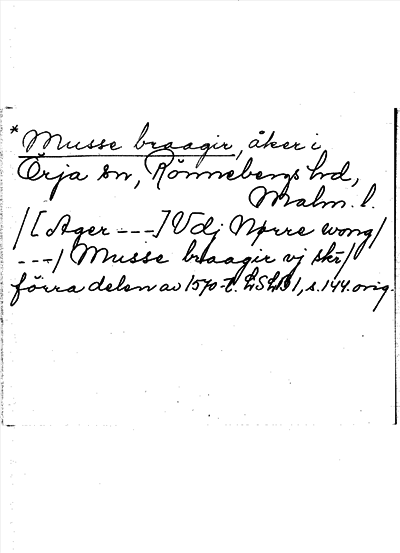 * Musse braagir, åker i
Örja sn, Rönnebergs hd,
Malm. l.
/[Ager ---] Vdj Nørre wong/
---/ Musse braagir vj skr/
förra delen av 1570-t. LSLB 1, s. 144. orig.